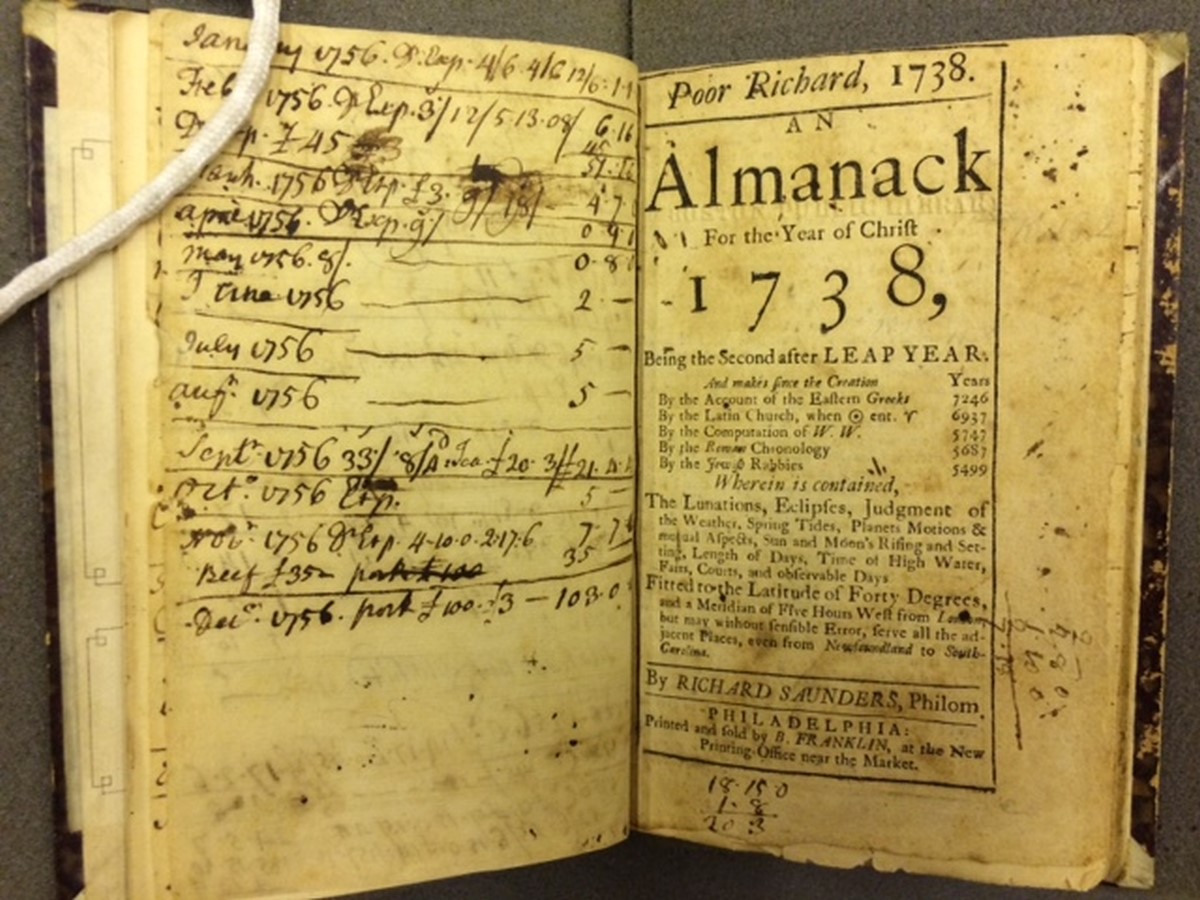 January 1756. Exp. 4/6 4/6 12/6
Feb 1756. Exp. 3/ 12/ 5 13.08/ 6.16
£45
51.
1756 Exp. £3. 9/ 18/ 4.7
aprill 1756. Exp. 9/ 0 9
may 1756. 8/. 0.8
June 1756 — 2 —
July 1756 — 5 —
augt 1756 — 5 —
Septr 1756 33/ 8/ £20. 3/ 21.
Octo 1756 Exp. 5 —
Novr 1756 Exp 4-10-0-2-17-6 7.7
Beef £35 pork £100 35
Decr. 1756. pork £100. £3 — 103.0
Poor Richard, 1738.
AN
Almanack
For the Year of Chriſt
1738,
Being the Second after LEAP YEAR.
And makes ſince the Creation Years
By the Account of the Eaſtern Greeks 7246
By the Latin Church, when ☉ ent. ♈ 6937
By the Computation of W. W. 5747
By the Roman Chronology 5687
By the Jewiſh Rabbies 5499
Wherein is contained,
The Lunations, Eclipſes, Judgment of
the Weather, Spring Tides, Planets Motions &
mutual Aſpects, Sun and Moon's Riſing and Set-
ting, Length of Days, Time of High Water,
Fairs, Courts, and obſervable Days
Fitted to the Latitude of Forty Degrees,
and a Meridian of Five Hours Weſt from London,
but may without ſenſible Error, ſerve all the ad-
jacent Places, even from Newfoundland to South-
Carolina.
By RICHARD SAUNDERS, Philom.
PHILADELPHIA:
Printed and ſold by B. FRANKLIN, at the New
Printing-Office near the Market.
18.15 0
1.8
20 3